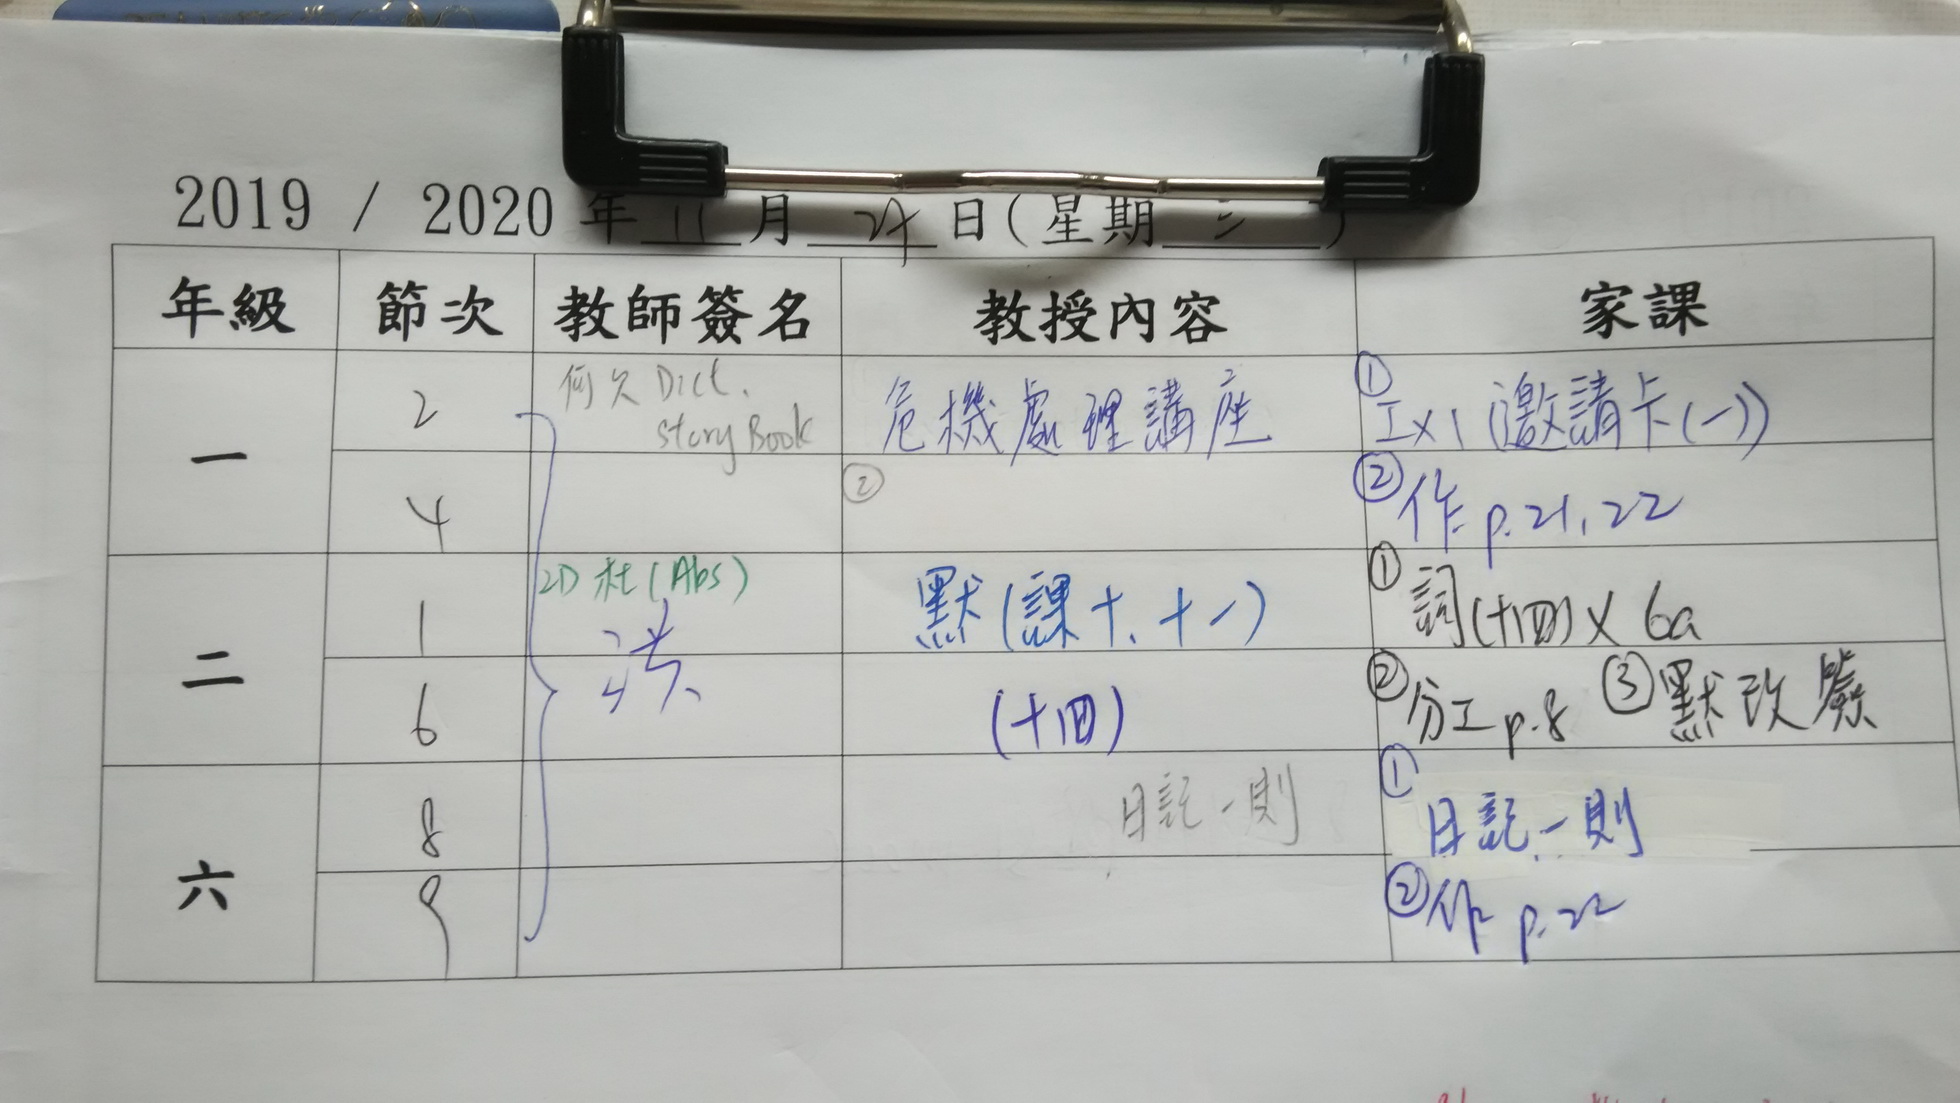 2019 / 2020 年 11 月 27 日(星期 三 )
年級 節次 教師簽名 教授內容 家課
一
2 何欠 Dict. 危機處理講座 ① 工x1 (邀請卡(一))
story Book
4 ② ② 作 p.21, 22
二
1 2D 杜(Abs) 默(課十、十一) ① 詞(十四) x 6a
6 (十四) ② 分工 p.8 ③ 默改簽
六
8 日記一則 ① 日記一則
9 ② 作 p.22